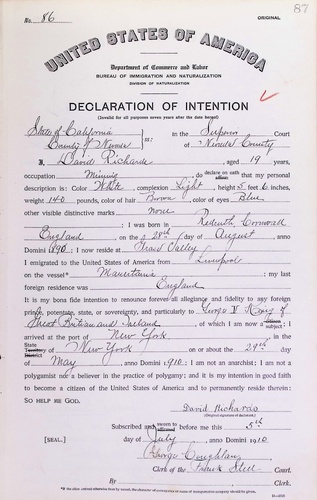 No. 86 ORIGINAL 87
UNITED STATES OF AMERICA
Department of Commerce and Labor
BUREAU OF IMMIGRATION AND NATURALIZATION
DIVISION OF NATURALIZATION
DECLARATION OF INTENTION
(Invalid for all purposes seven years after the date hereof)
State of California
County of Nevada ss: in the Superior Court of Nevada County
I, David Richards, aged 19 years,
occupation Mining, do declare on oath affirm that my personal
description is: Color White, complexion Light, height 5 feet 6 inches,
weight 140 pounds, color of hair Brown, color of eyes Blue,
other visible distinctive marks none
I was born in Redruth, Cornwall
England on the 28th day of August, anno
Domini 1890; I now reside at Grass Valley
I emigrated to the United States of America from Liverpool
on the vessel* Mauretania; my last
foreign residence was England
It is my bona fide intention to renounce forever all allegiance and fidelity to any foreign
prince, potentate, state, or sovereignty, and particularly to George V King of
Great Britain and Ireland, of which I am now a citizen subject; I
arrived at the port of New York, in the
State Territory District of New York on or about the 29th day
of May, anno Domini 1910; I am not an anarchist; I am not a
polygamist nor a believer in the practice of polygamy; and it is my intention in good faith
to become a citizen of the United States of America and to permanently reside therein:
SO HELP ME GOD.
David Richards
(Original signature of declarant.)
Subscribed and sworn to affirmed before me this 5th
[SEAL.] day of July, anno Domini 1910
George Coughlan
Clerk of the Court.
By , Clerk.